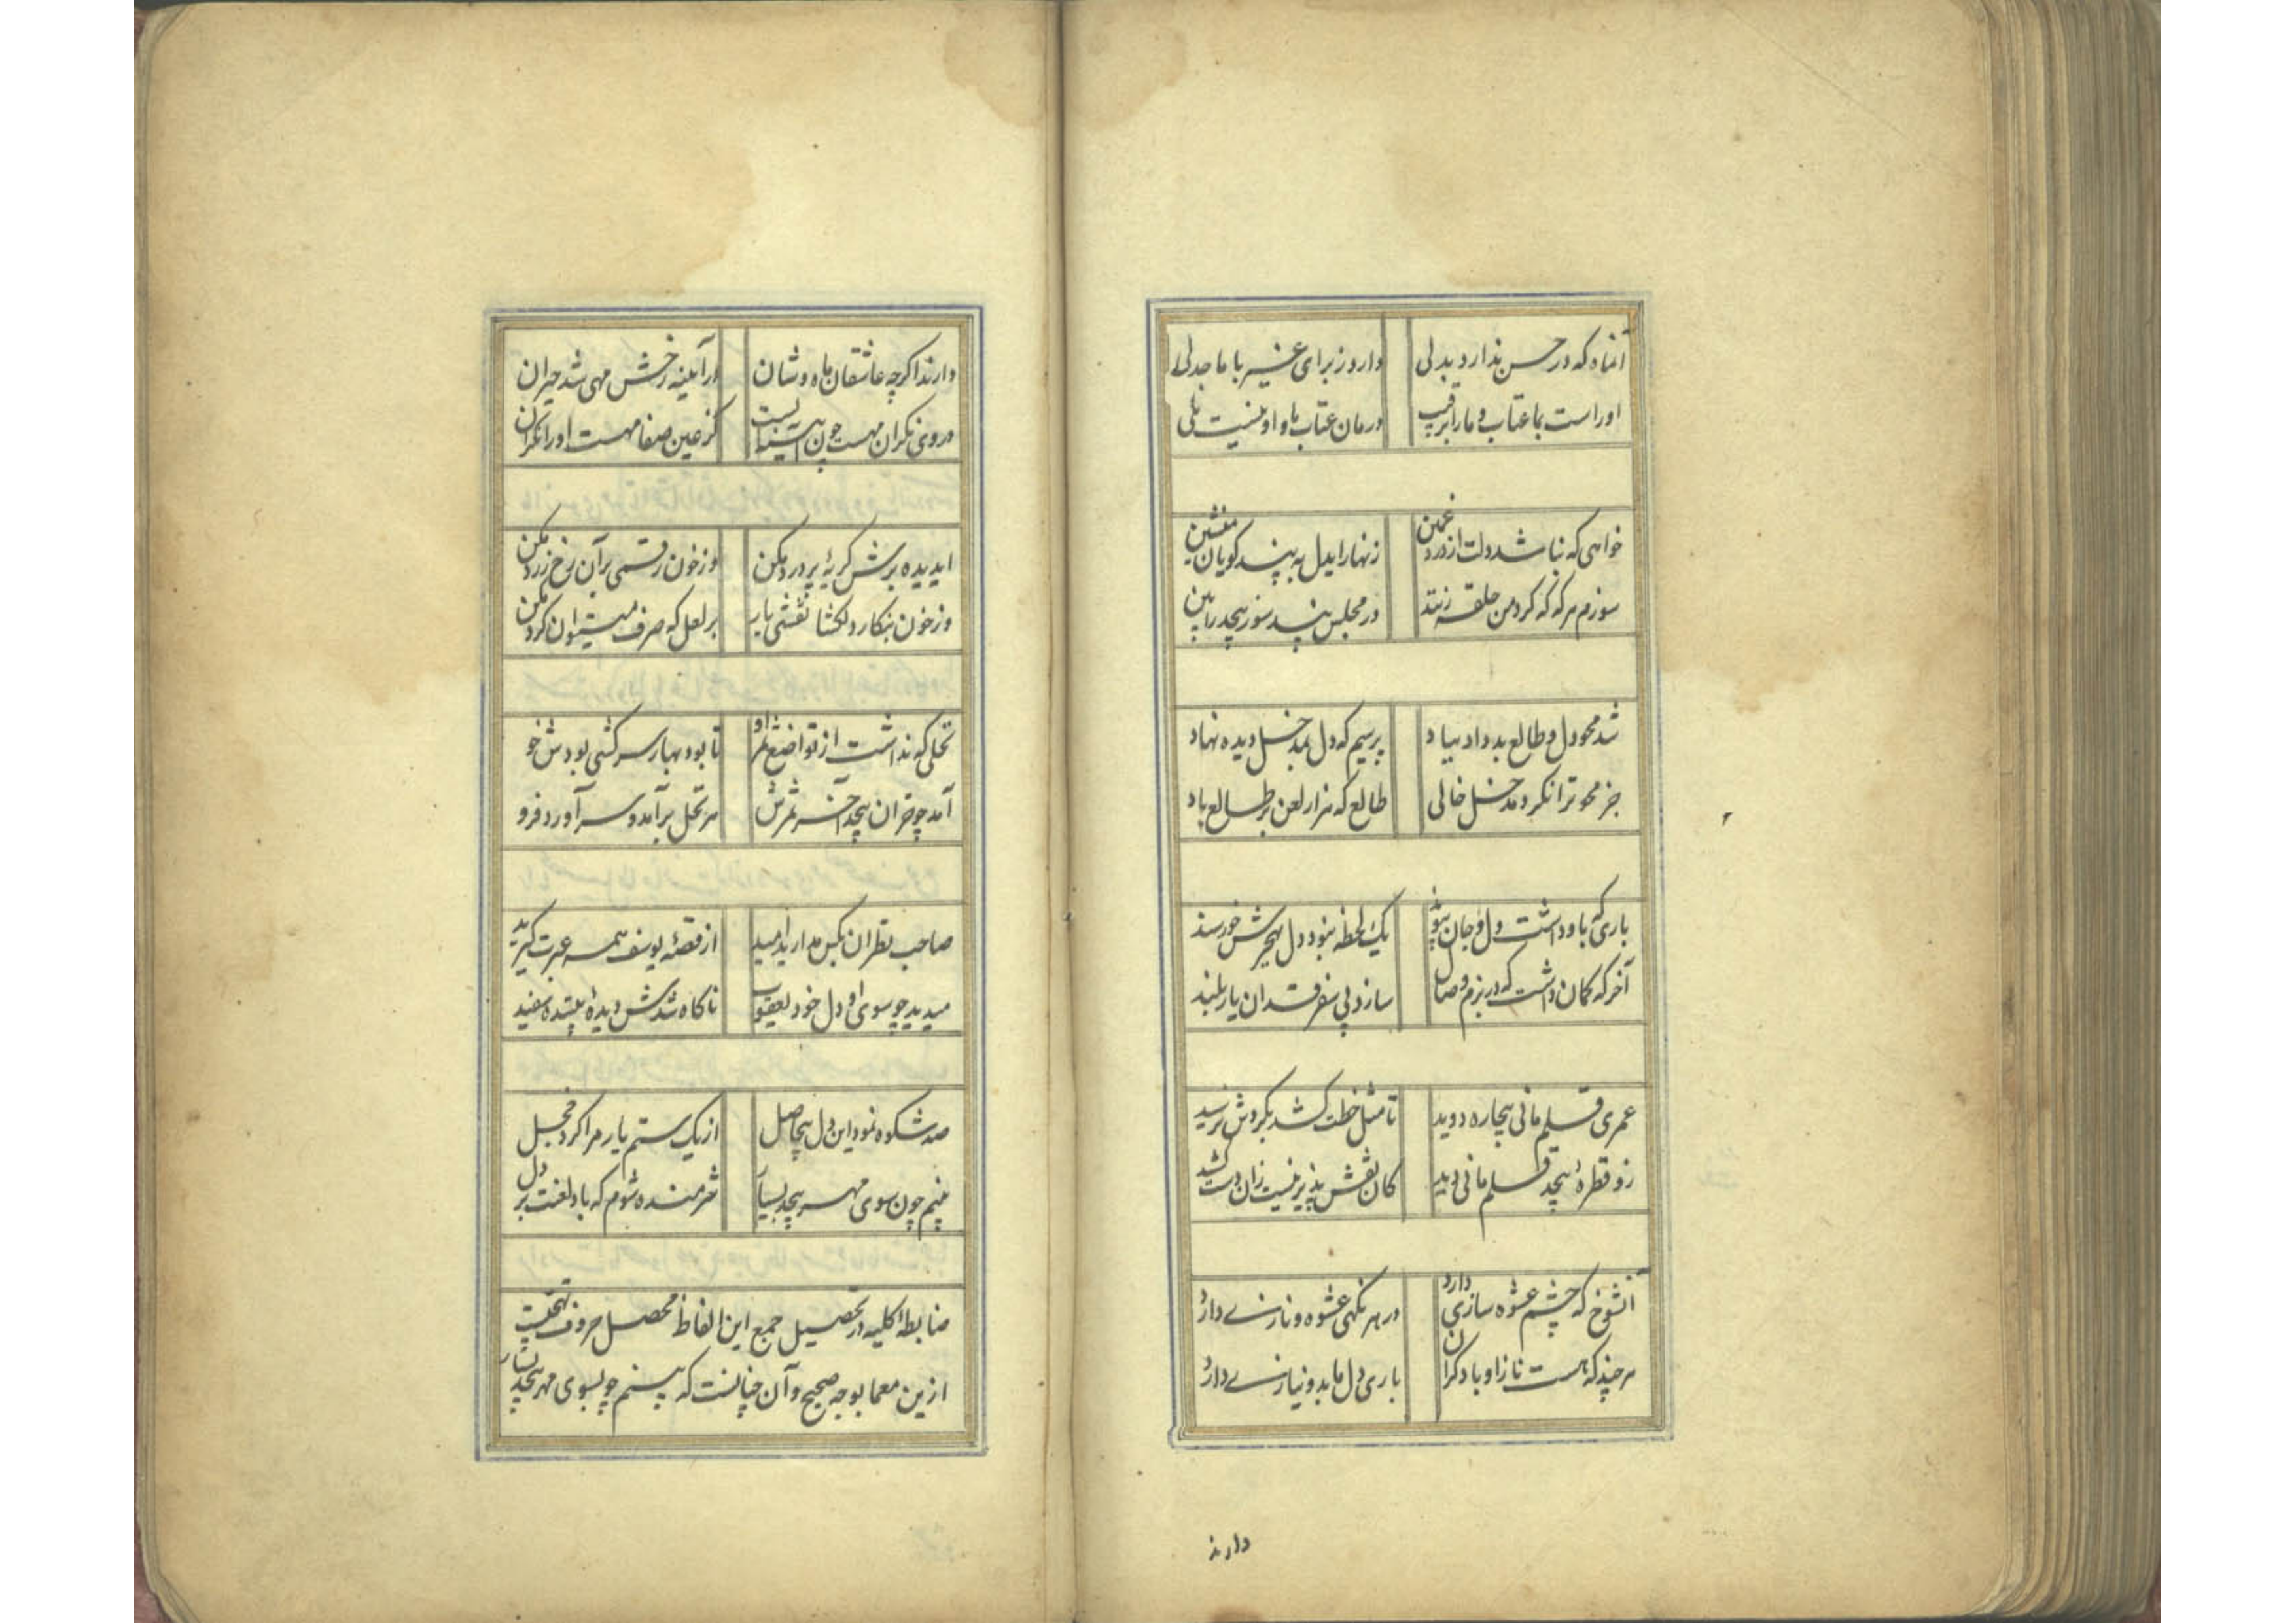 آنماه که در حسن ندارد بدلی دارد ز برای غیر با ما جدلی
او راست بما عتاب و ما را برقیب درمان عتاب ما و او نیست بلی
خواهی که نباشد دلت از درد غمین زنهار ایدل به پند گویان منشین
سوزم هر که که گرد من حلقه زنند در مجلس پند سوز بیحد را بین
شد محو دل و طالع بد داد بباد پرسیم که دل بمدخل دیده نهاد
جز محو ترا نکرد مدخل خالی طالع که هزار لعن بر طالع باد
یاری که باو داشت دل و جان پیوند یک لحظه نبود دل بهجرش خورسند
آخر که گمان داشت که در بزم وصال سازد پی سفر قد آن یار بلند
عمری قلم مانی بیچاره دوید تا مثل خطت کشد بگردش نرسید
زو قطرهٔ بیحد قلم مانی دید کان نقش پذیر نیست زان دست کشید
آنشوخ که چشم عشوه سازی دارد در هر نگهی عشوه و نازی دارد
هر چند که هست ناز او باد گران باری دل ما بدو نیازی دارد
دارند
دارند اگر چه عاشقان ماه وشان در آینه رخش مهی شد حیران
در وی نگران مهست چون آینه ایست کز عین صفا مهست او را نگران
ایدیده برش گریهٔ پر درد مکن وز خون رقمی بر آن رخ زرد مکن
وز خون بنگار دلکشا نقشی یار بر لعل که صرف میتوان کرد مکن
نخلی که نداشت از تواضع ثمر او تا بود بهار سرکشی بودش خو
آمد چو خزان بیحد آخر ثمرش هر نخل برآمد و سر آورد فرو
صاحب نظران بکس مدارید امید از قصهٔ یوسف همه عبرت گیرید
میدید چو سوی او دل خود یعقوب ناگاه شدش دیدهٔ بیننده سفید
صد شکوه نمود این دل بیحاصل از یک ستم یار مرا کرد خجل
بینم چون سوی مهر بیحد بسیار شرمنده شوم که باد لعنت بر دل
ضابطهٔ کلیه در تحصیل جمع این الفاظ محصل حروف تهجیست
ازین معما بوجه صحیح و آن چنانست که بینم چو بسوی مهر بیحد بسیار